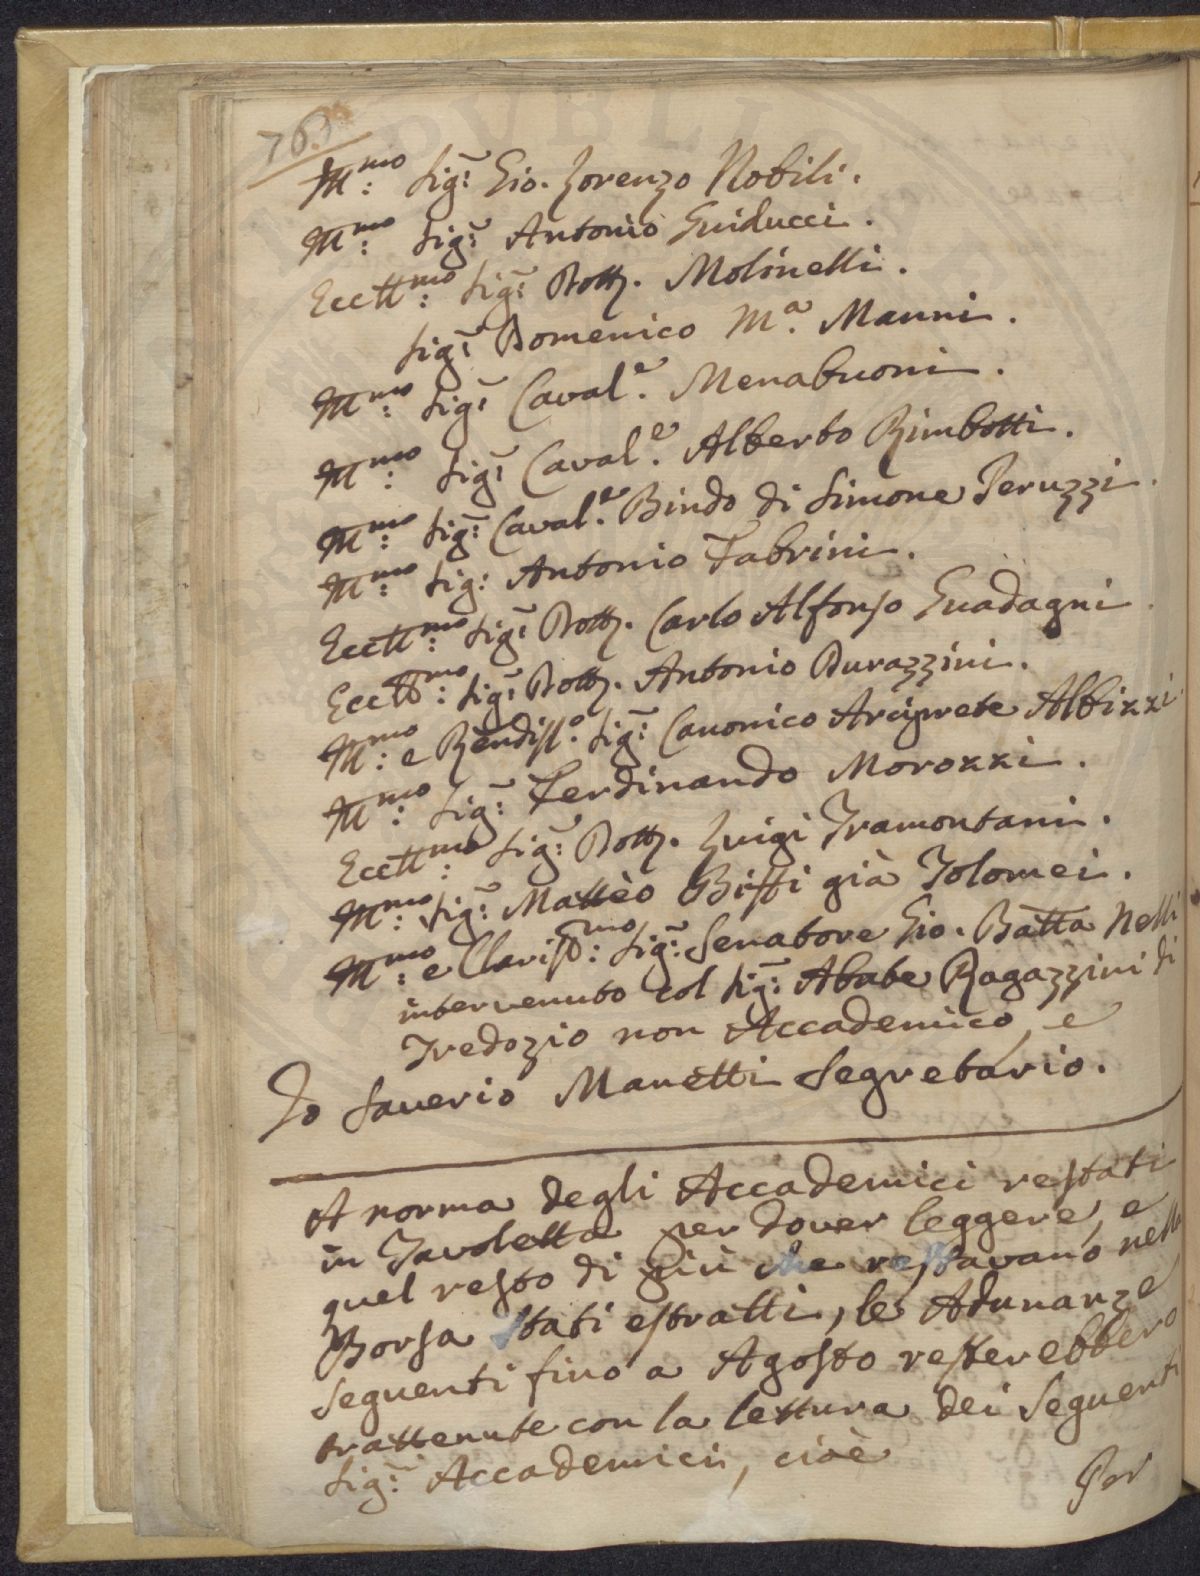 76.
Ill.mo Sig.r Gio. Lorenzo Nobili.
Ill.mo Sig.r Antonio Guiducci.
Eccll.mo Sig.r Dott. Molinelli.
Sig.r Domenico M.a Manni.
Ill.mo Sig.r Caval.e Menabuoni.
Ill.mo Sig.r Caval.e Alberto Rimbotti.
Ill.mo Sig.r Caval.e Bindo di Simone Peruzzi.
Ill.mo Sig: Antonio Fabrini.
Eccll.mo Sig.r Dott. Carlo Alfonso Guadagni.
Eccll.mo Sig.r Dott. Antonio Durazzini.
Ill.mo e Rendiss.o Sig.r Canonico Arciprete Albizzi
Ill.mo Sig.r Ferdinando Morozzi.
Eccll.mo Sig.r Dott. Luigi Tramontani.
Ill.mo Sig.r Matteo Biffi già Tolomei.
Ill.mo e Clariss.mo Sig.r Senatore Gio. Batta Nelli
intervenuto col Sig.r Abate Ragazzini di
Tredozio non Accademico, e
Io Saverio Manetti Segretario.
A norma degli Accademici restati
in Tavoletta per dover leggere, e
quel resto di più che restavano nella
Borsa stati estratti, le Adunanze
seguenti fino a Agosto resterebbero
trattenute con la lettura dei seguenti
Sig.ri Accademici, cioè
Per